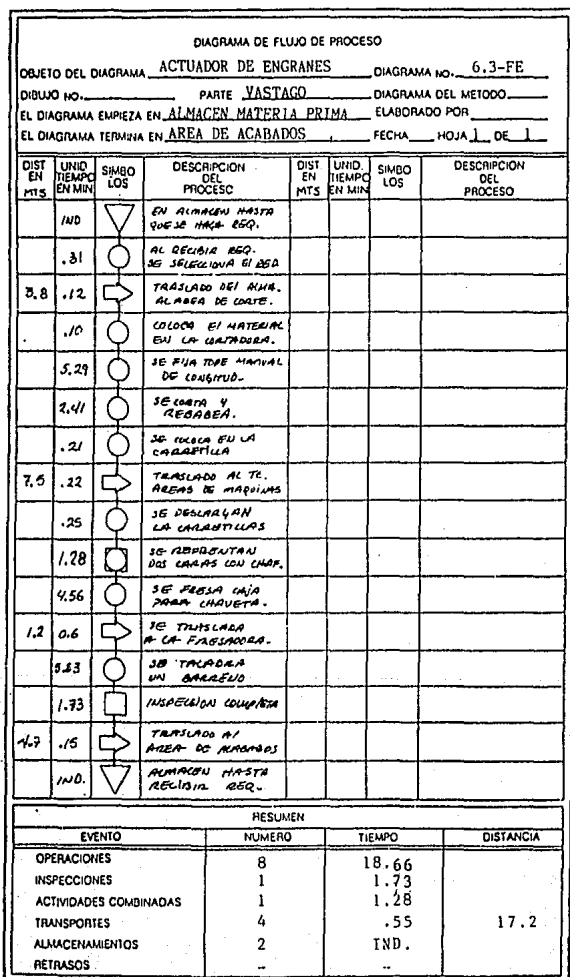 DIAGRAMA DE FLUJO DE PROCESO
OBJETO DEL DIAGRAMA ACTUADOR DE ENGRANES DIAGRAMA NO. 6.3-FE
DIBUJO NO. PARTE VASTAGO DIAGRAMA DEL METODO
EL DIAGRAMA EMPIEZA EN ALMACEN MATERIA PRIMA ELABORADO POR
EL DIAGRAMA TERMINA EN AREA DE ACABADOS FECHA HOJA 1 DE 1
DIST EN MTS UNID TIEMPO EN MIN SIMBO LOS DESCRIPCION DEL PROCESO DIST EN MTS UNID. TIEMPO EN MIN SIMBO LOS DESCRIPCION DEL PROCESO
IND EN ALMACEN HASTA
QUE SE HAGA REQ.
.31 AL RECIBIR REQ.
SE SELECCIONA El
3.8 .12 TRASLADO DEl ALMA.
AL AREA DE CORTE.
.10 COLOCA El MATERIAL
EN LA CORTADORA.
5.29 SE FIJA TOPE MANUAL
DE LONGITUD.
2.41 SE CORTA Y
REBABEA.
.21 SE COLOCA EN LA
CARRETILLA
7.5 .22 TRASLADO AL TC.
AREAS DE MAQUINAS
.25 SE DESCARGAN
LA CARRETILLAS
1.28 SE REFRENTAN
DOS CARAS CON CHAF.
4.56 SE FRESA CAJA
PARA CHAVETA.
1.2 0.6 SE TRASLADA
A LA FRESADORA.
5.53 SE TALADRA
UN BARRENO
1.73 INSPECCION COMPLETA
4.7 .15 TRASLADO Al
AREA DE ACABADOS
IND. ALMACEN HASTA
RECIBIR REQ.
RESUMEN
EVENTO NUMERO TIEMPO DISTANCIA
OPERACIONES 8 18.66
INSPECCIONES 1 1.73
ACTIVIDADES COMBINADAS 1 1.28
TRANSPORTES 4 .55 17.2
ALMACENAMIENTOS 2 IND.
RETRASOS -- --